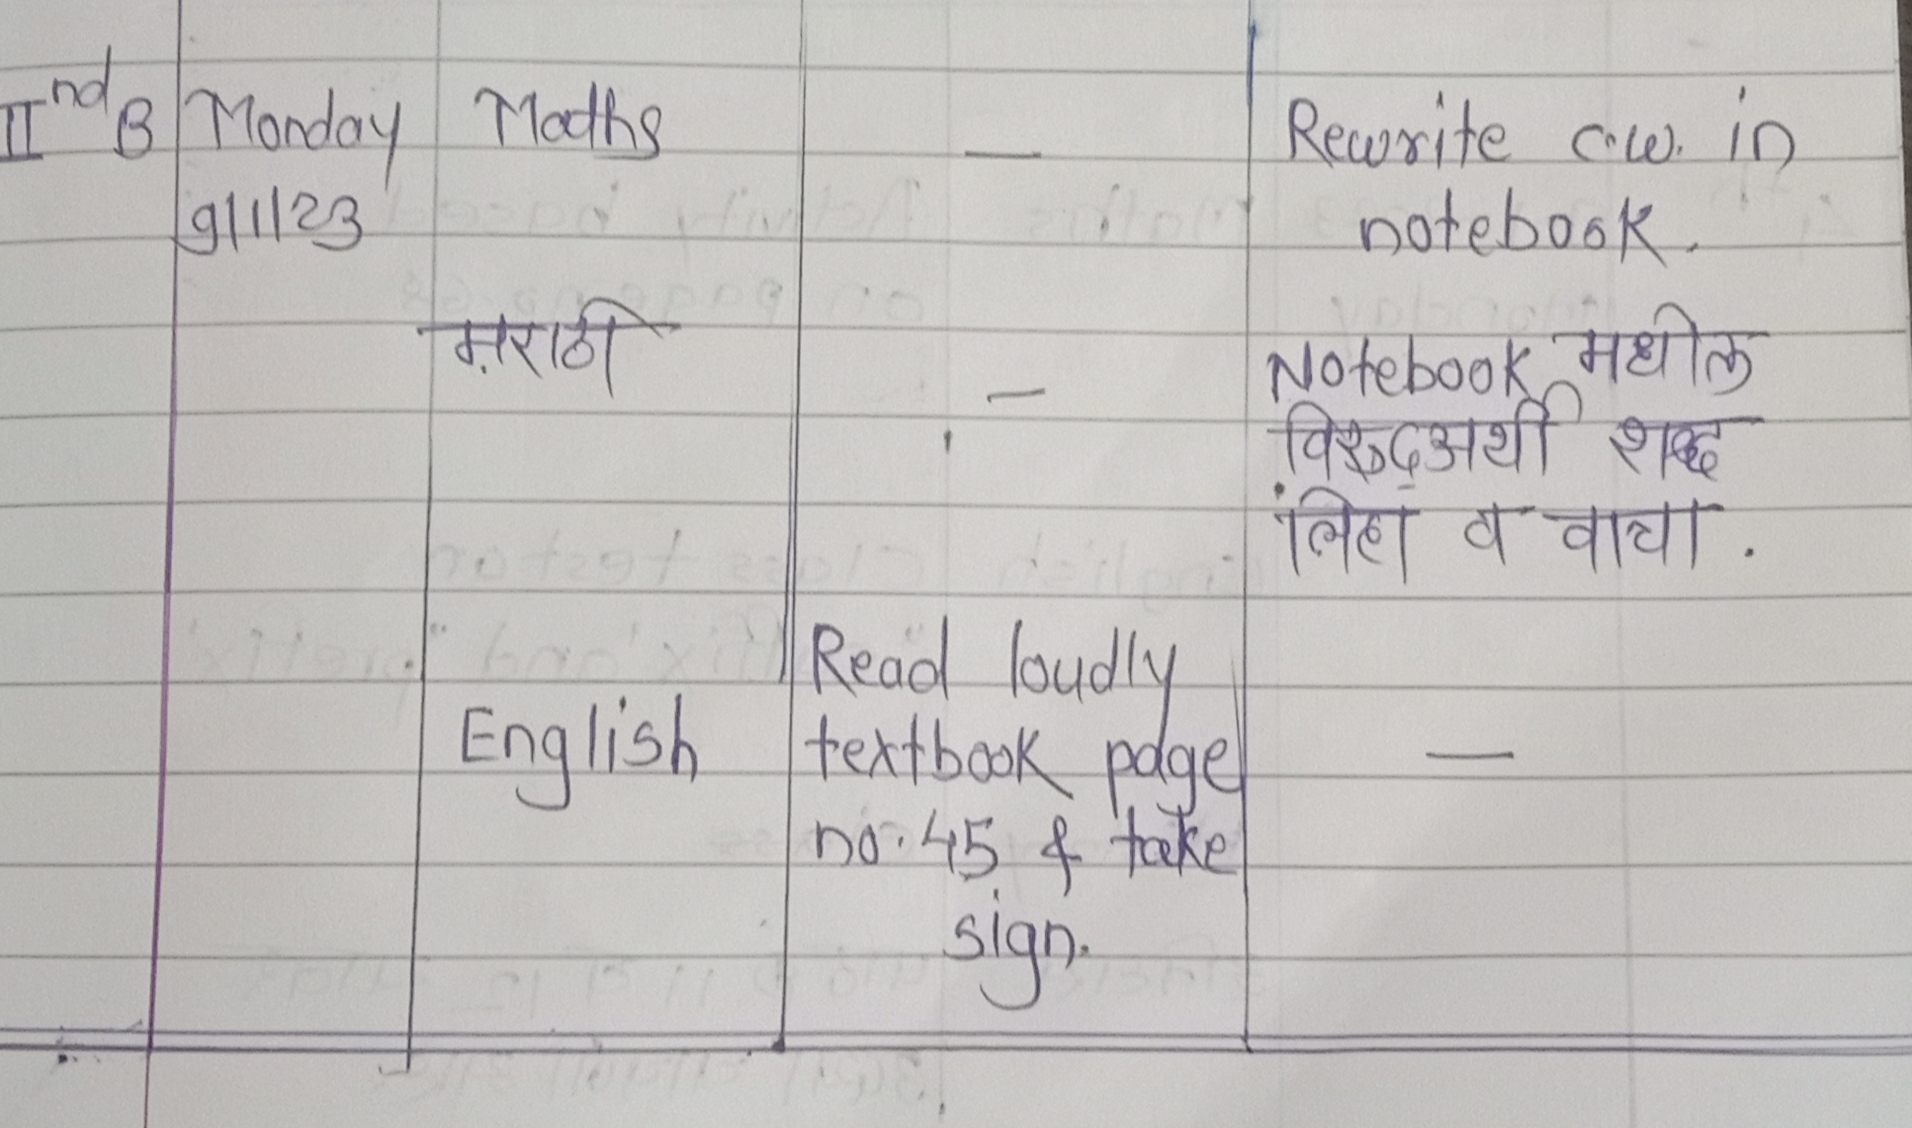 IInd B Monday Maths — Rewrite c.w. in
9/1/23 notebook.
मराठी — Notebook मधील
विरुद्अर्थी शब्द
लिहा व वाचा.
Read loudly
English textbook page —
no. 45 & take
sign.